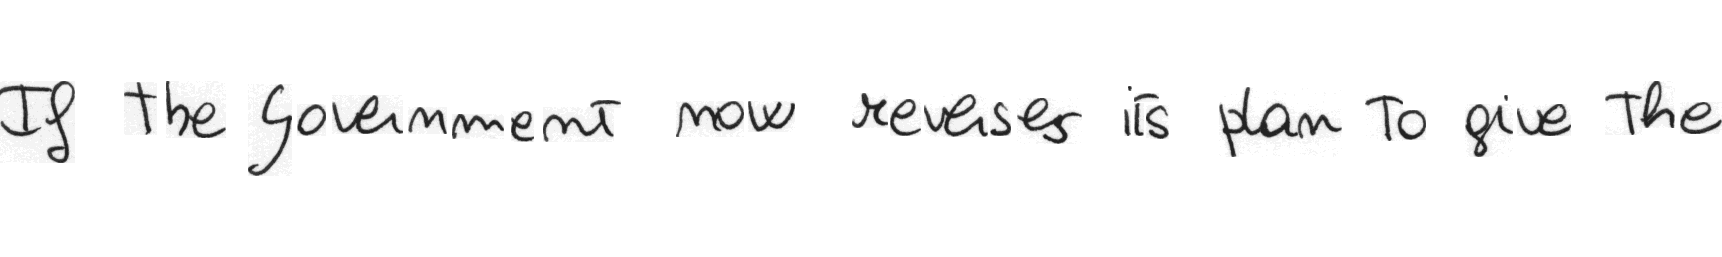 If the Government now reverses its plan to give the